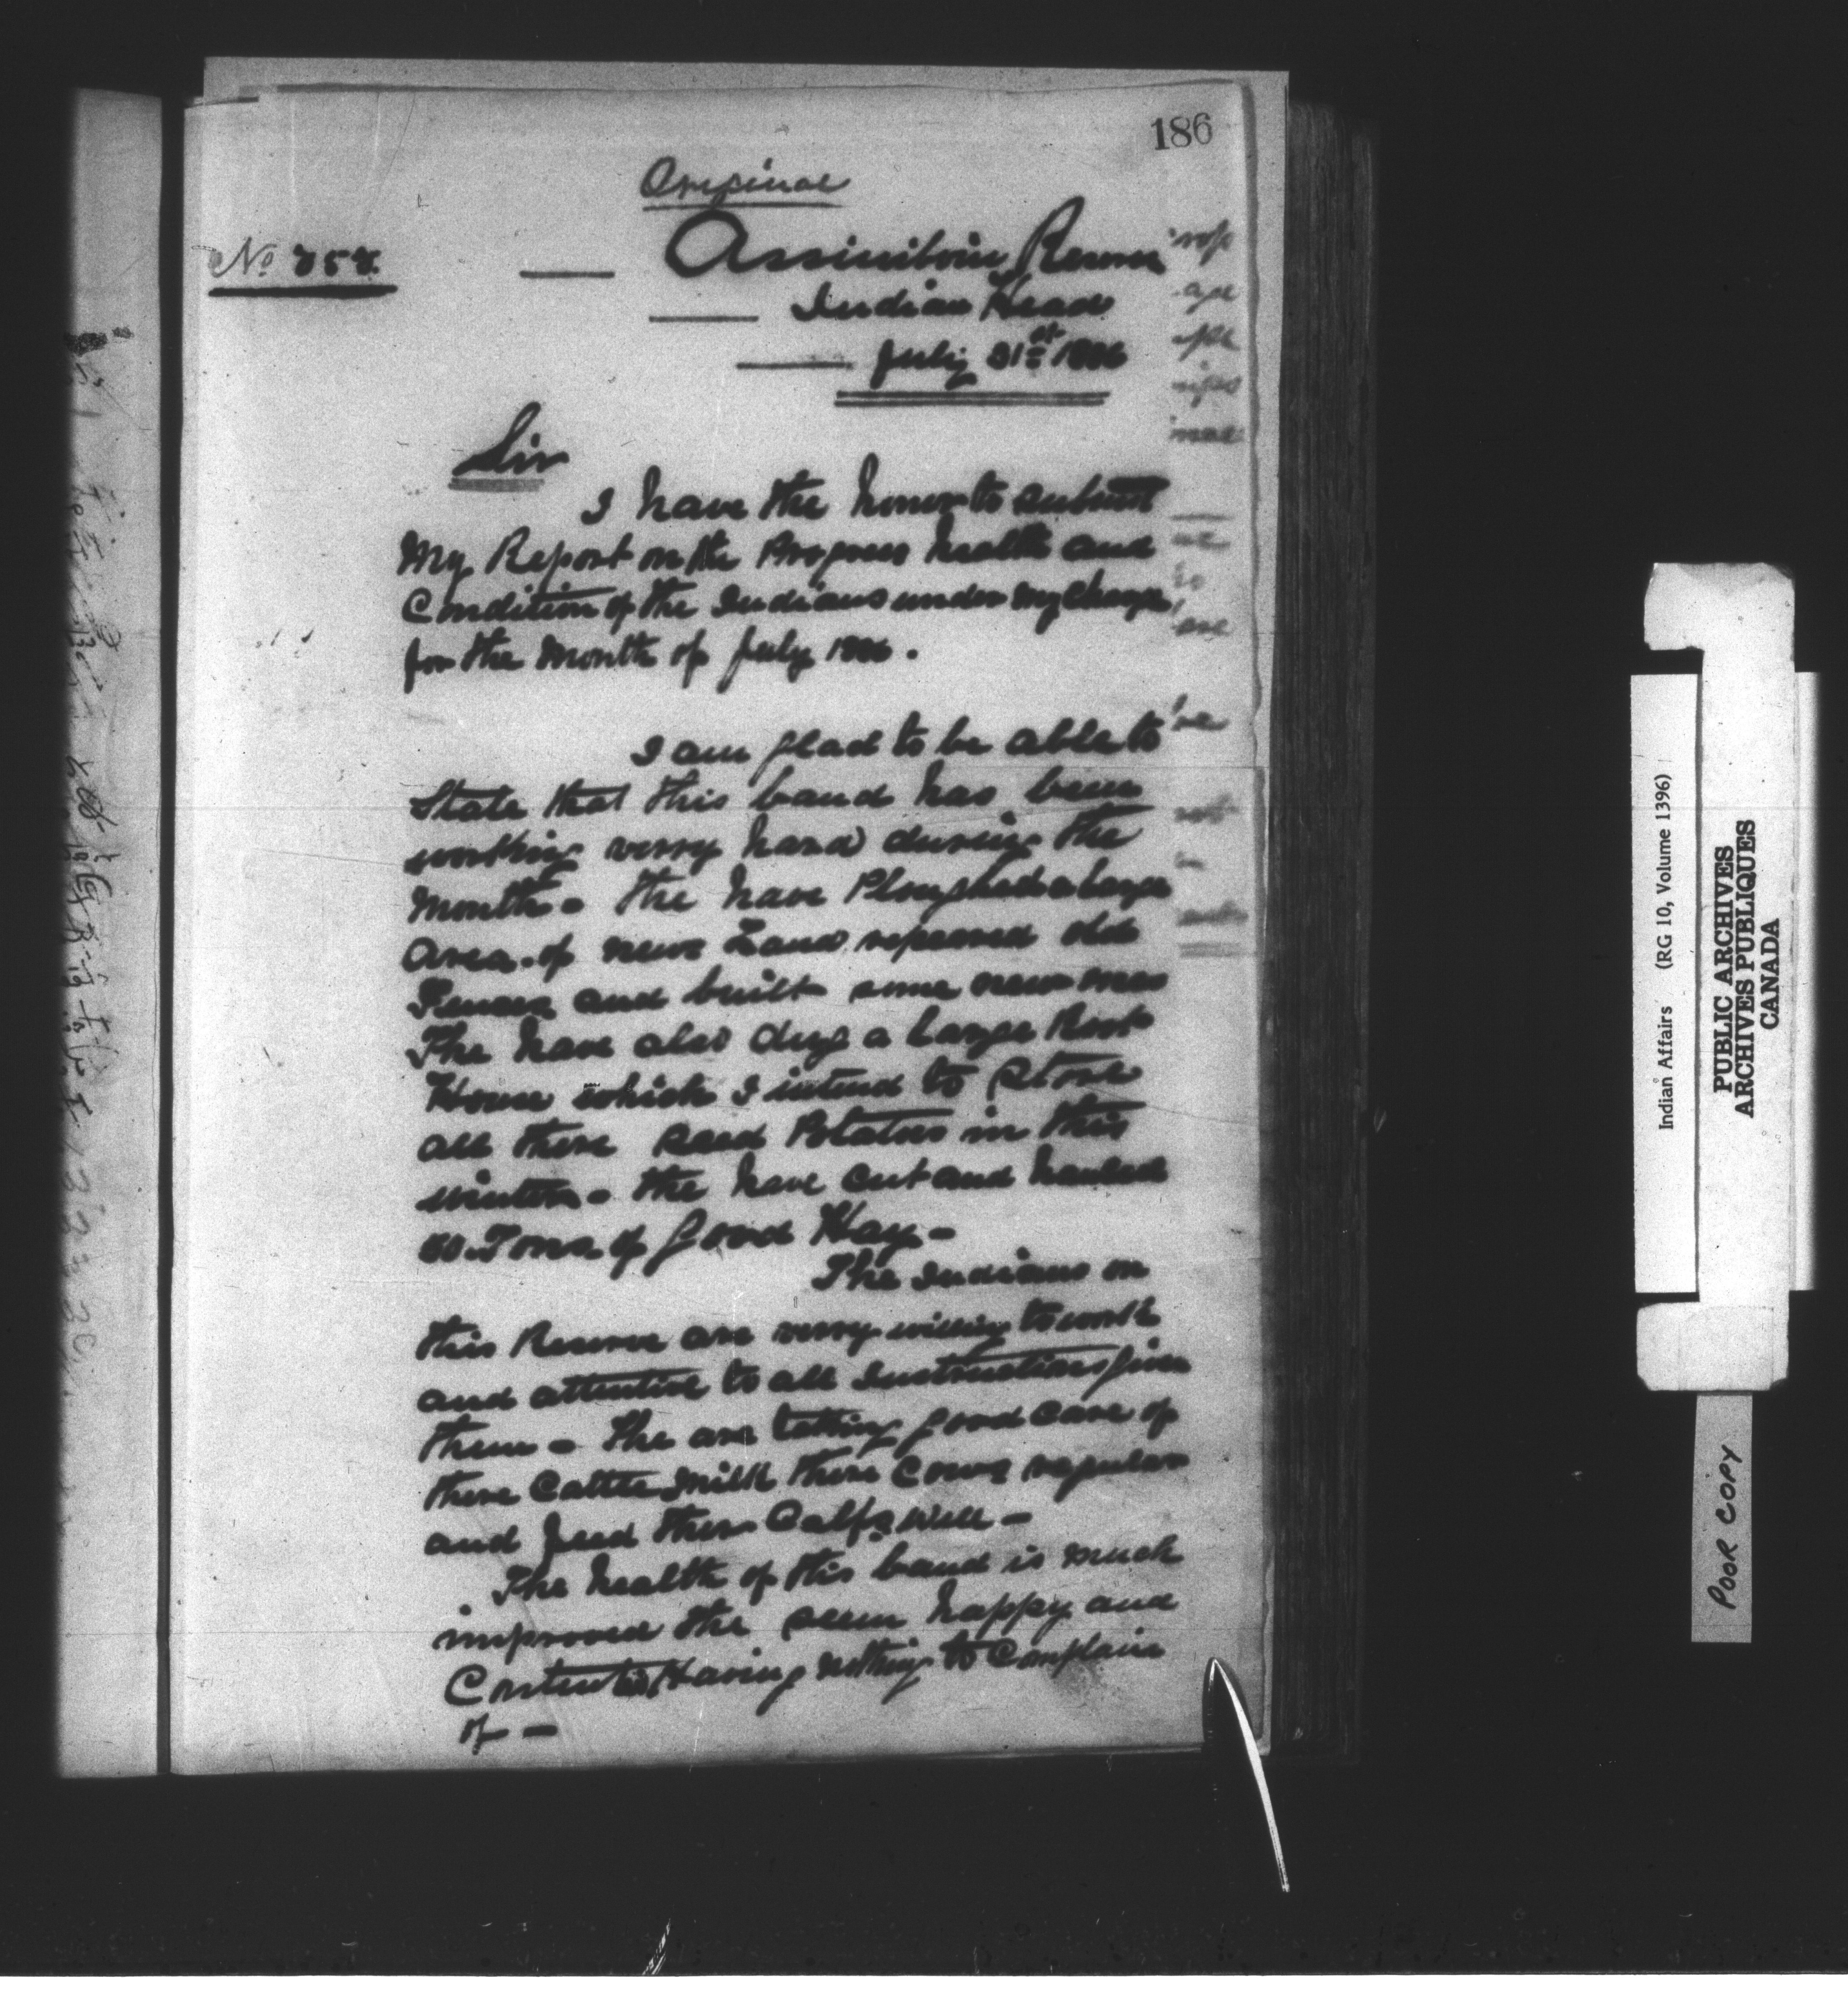 186
Original
No 758.
Assiniboin Reserve
Indian Head
July 31st 1886
Sir
I have the honor to submit
My Report on the Progress health and
Condition of the Indians under my Charge
for the Month of July 1886.
I am glad to be able to
State that this band has been
working verry hard during the
Month. The have Ploughed a large
area of new Land, repeared old
Fences and built some new ones
The have also dug a large Root
House which I intend to Store
all there Seed Potatoes in this
winter. the have cut and hauled
Tons of Good Hay-
The Indians on
this Reserve are verry willing to work
and attentive to all Instructions given
them. The are taking good care of
there Cattle milk there Cows regular
and feed ther Calfs well-
The health of this band is much
improved the seem happy and
Contented, Having nothing to Complain
of-
Indian Affairs (RG 10, Volume 1396)
PUBLIC ARCHIVES
ARCHIVES PUBLIQUES
CANADA
POOR COPY